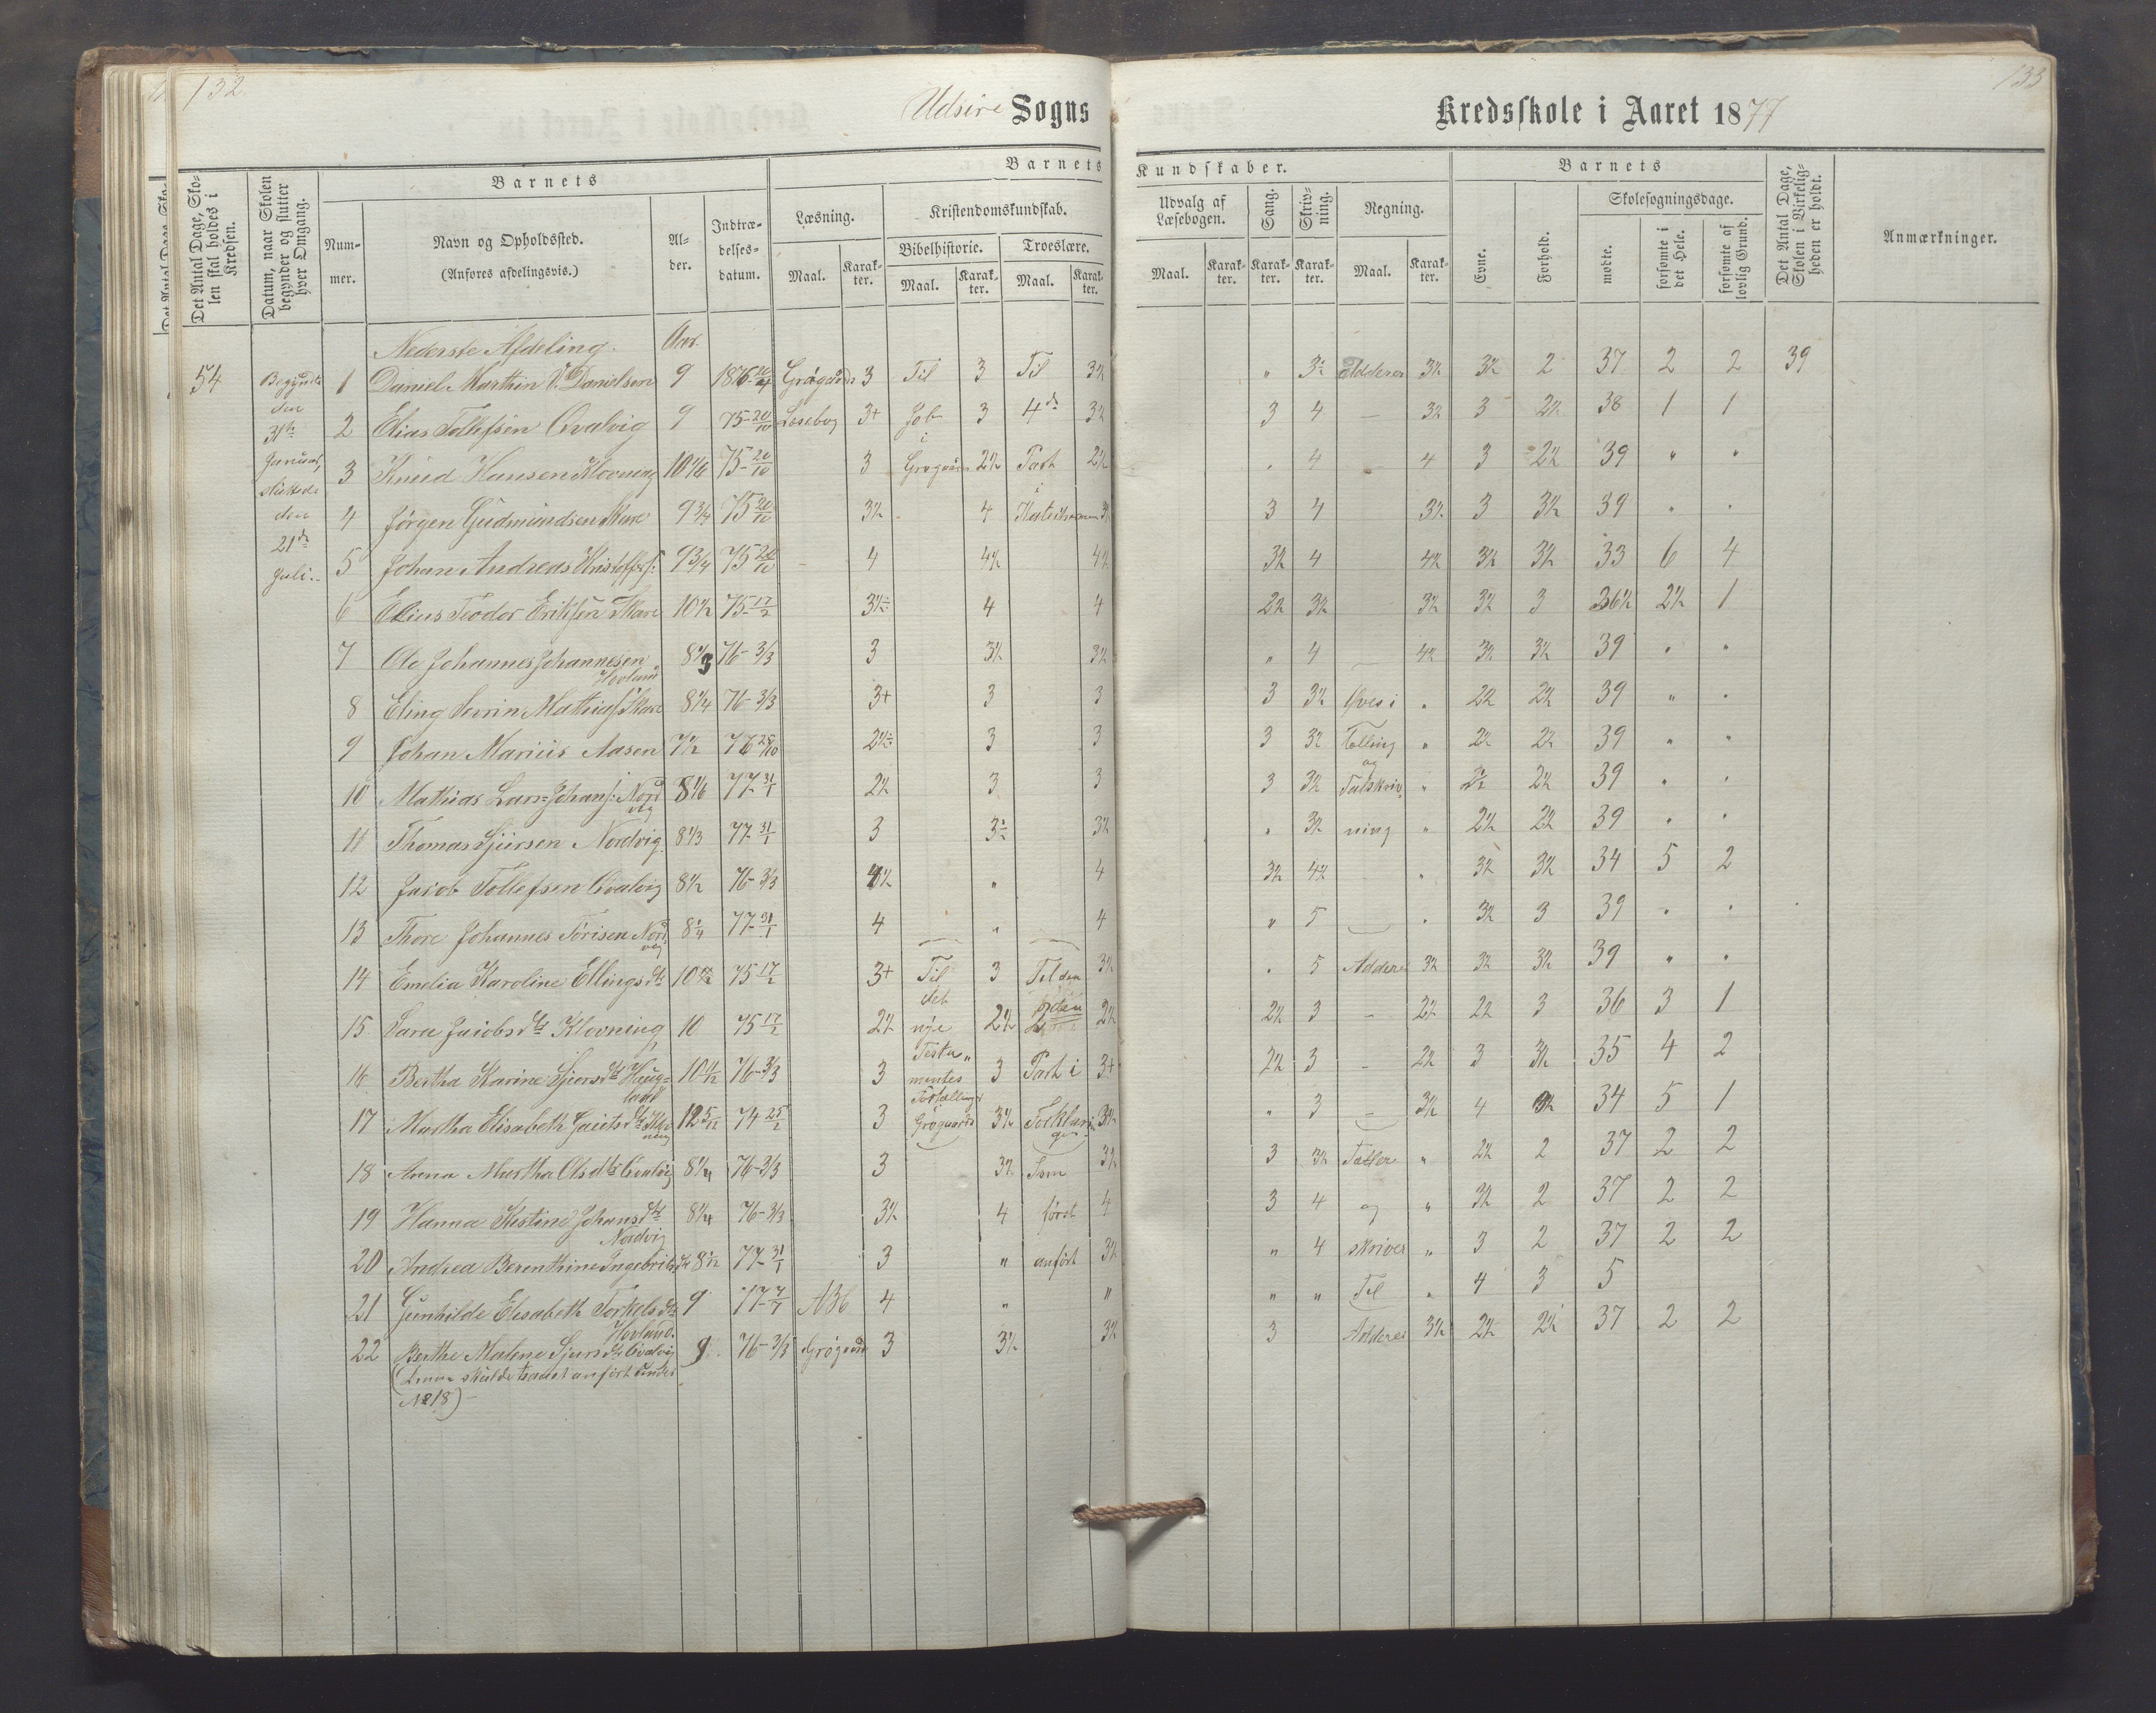 132
133
Udsire Sogns Kredsskole i Aaret 1877
Det Antal Dage, Skolen skal holdes i Kredsen.
Datum, naar Skolen begynder og slutter hver Omgang.
Barnets
Nummer.
Navn og Opholdssted.
(Anføres afdelingsvis.)
Alder.
Indtrædelsesdatum.
Barnets Kundskaber.
Læsning.
Maal. Karakter.
Kristendomskundskab.
Bibelhistorie.
Maal. Karakter.
Troeslære.
Maal. Karakter.
Udvalg af Læsebogen.
Maal. Karakter.
Sang.
Karakter.
Skrivning.
Karakter.
Regning.
Maal. Karakter.
Barnets
Evne.
Forhold.
Skolesøgningsdage.
mødte.
forsømte i det Hele.
forsømte af lovlig Grund.
Det Antal Dage, Skolen i Virkeligheden er holdt.
Anmærkninger.
Nederste Afdeling. Aar.
54 Begyndte den 31te Januar, sluttede den 21de Juli.
1 Daniel Marthin V. Danielsen 9 3 Til 3 Til 3½ " Adderer 3½ 3½ 2 37 2 2 39
2 Elias Tollefsen Qvalvig 9 75 20/10 Læsebog 3+ Job 3 4de 3½ 3 4 — 3½ 3 2½ 38 1 1
3 Knud Hansen Klovning 10 1/6 75 20/10 3 i 2½ Part 2½ " 4 4 3 2½ 39 " "
4 Jørgen Gudmundsen Skare 9 3/4 75 20/10 3½ 4 i 3 4 3½ 3 3½ 39 " "
5 Johan Andreas Kristoffers: 9 3/4 75 20/10 4 4½ 4½ 3½ 4 4½ 3½ 3½ 33 6 4
6 Elius Teodor Eriksen Skare 10½ 75 17/2 3½ 4 4 2½ 3½ 3½ 3½ 3 36½ 2½ 1
7 Ole Johannes Johannesen Hovland 8 1/3 76 3/3 3 3½ 3½ " 4 — 4½ 3½ 3½ 39 " "
8 Eling Severin Mathias: Skare 8 1/4 76 3/3 3+ 3 3 3 3½ Øves i " 2½ 2½ 39 " "
9 Johan Marius Aasen 7½ 76 25/10 2½ 3 3 3 3½ Tælling " 2½ 2½ 39 " "
10 Mathias Lars= Johans: Nordvig 8 1/6 77 31/1 2½ 3 3 3 3½ og Talskriv " 2½ 2½ 39 " "
11 Thomas Sjursen Nordvig 8 1/3 77 31/1 3 3½ " 3½ ning " 2½ 2½ 39 " "
12 Jacob Tollefsen Qvalvig 8½ 76 3/3 4½ " 4 3½ 4½ " 3½ 3½ 34 5 2
13 Thore Johannes Torisen Nordvig 77 31/1 4 " 4 " 5 " 3½ 3 39 " "
14 Emelia Karoline Ellingsdt 75 17/2 3+ Til 3 Til den 3½ " 5 Adderer 3½ 3½ 3½ 39 " "
15 Sara Jacobsdtr Klovning 10 75 17/2 2½ det nye 2½ 2½ 2½ 3 – 2½ 2½ 3 36 3 1
16 Bertha Karine Sjursdtr Haugland 76 3/3 3 Testamentes 3 Part i 3+ 2½ 3 – 2½ 3 3½ 35 4 2
17 Martha Elisabeth Gautsdtr 12 5/12 74 25/2 3 Fortællinger Grøgaards 3½ Forklaringen 3½ " 3 – 3½ 4 34 5 1
18 Anna Martha Olsdtr Qvalvig 8 1/4 76 3/3 3 3½ Som 3½ 3 3½ Tæller " 2½ 2 37 2 2
19 Hanna Kistine Johansdtr Nordvig 8 1/4 76 3/3 3½ 4 først 4 3 4 og " 3½ 2 37 2 2
20 Andrea Berenthine Ingebritsdt 77 31/1 3 " anført 3½ " 4 skriver " 3 2 37 2 2
21 Gunhilde Elisabeth Torkelsdtr Hovland. 9 Abc 4 " " " " Til " 4 3 5
22 Berthe Malene Sjursdtr Qvalvig 9 76 3/3 Grøgaard 3 3½ 3½ 3 Adderer 3½ 2½ 2½ 37 2 2
(Denne skulde været anført under
No 18) –